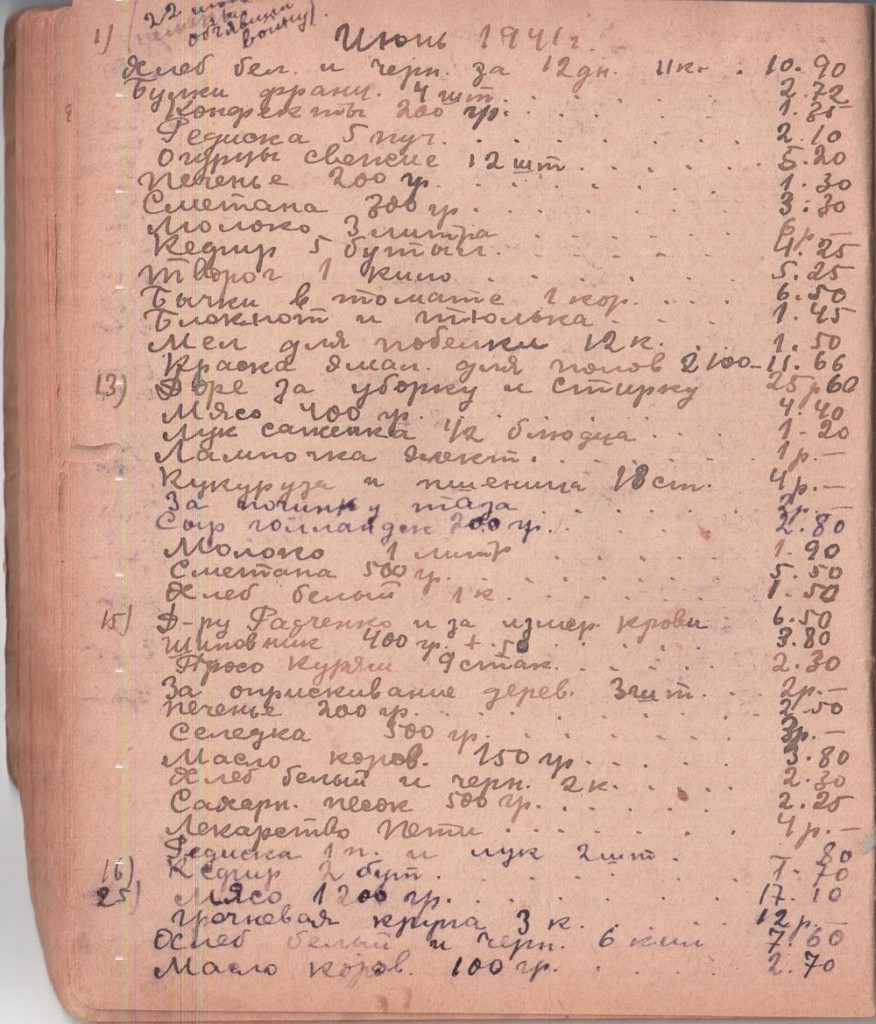 22
объявили
войну).
1) Июнь 1941 г.
Хлеб бел. и черн. за 12 дн. 11 к. . 10.90
Булки франц. 4 шт. . . . 2.72
Конфекты 200 гр. . . . 1.25
Редиска 5 пуч. . . . 2.10
Огурцы свежие 12 шт. . . . 5.20
Печенье 200 гр. . . . 1.30
Сметана 300 гр. . . . 3.30
Молоко 3 литра . . . 6р.—
Кефир 5 бутыл. . . . 4.25
Творог 1 кило . . . 5.25
Бычки в томате 1 кор. . . . 6.50
Блокнот и тюлька . . . 1.45
Мел для побелки 12 к. . . 1.50
Краска эмал. для полов 2100 - 11.66
13) Доре за уборку и стирку 25р60
Мясо 400 гр. . . . 4.40
Лук саженка 1/2 блюдца . . . 1.20
Лампочка элект. . . . 1р.—
Кукуруза и пшеница 18 ст. 4р.—
За починку таза . . . 3р.—
Сыр голландск 200 гр. . . . 2.80
Молоко 1 литр . . . 1.90
Сметана 500 гр. . . . 5.50
Хлеб белый 1 к. . . . 1.50
15) Д-ру Радченко и за измер. крови 6.50
Шиповник 400 гр. + .50 3.80
Просо курям 9 стак. . . . 2.30
За оприскивание дерев. 3 шт. . . 2р.—
Печенье 200 гр. . . . 2.50
Селедка 500 гр. . . . 3р.—
Масло коров. 150 гр. . . . 3.80
Хлеб белый и черн. 2 к. . . . 2.30
Сахарн. песок 500 гр. . . . 2.25
Лекарство Пети . . . 4р.—
Редиска 1 п. и лук 2 шт. . – 80
16) Кефир 2 бут. . . . 1.70
25) Мясо 1200 гр. . . . 17.10
Гречневая крупа 3 к. . . . 12р.—
Хлеб белый и черн. 6 кил 7.60
Масло коров. 100 гр. . . . 2.70